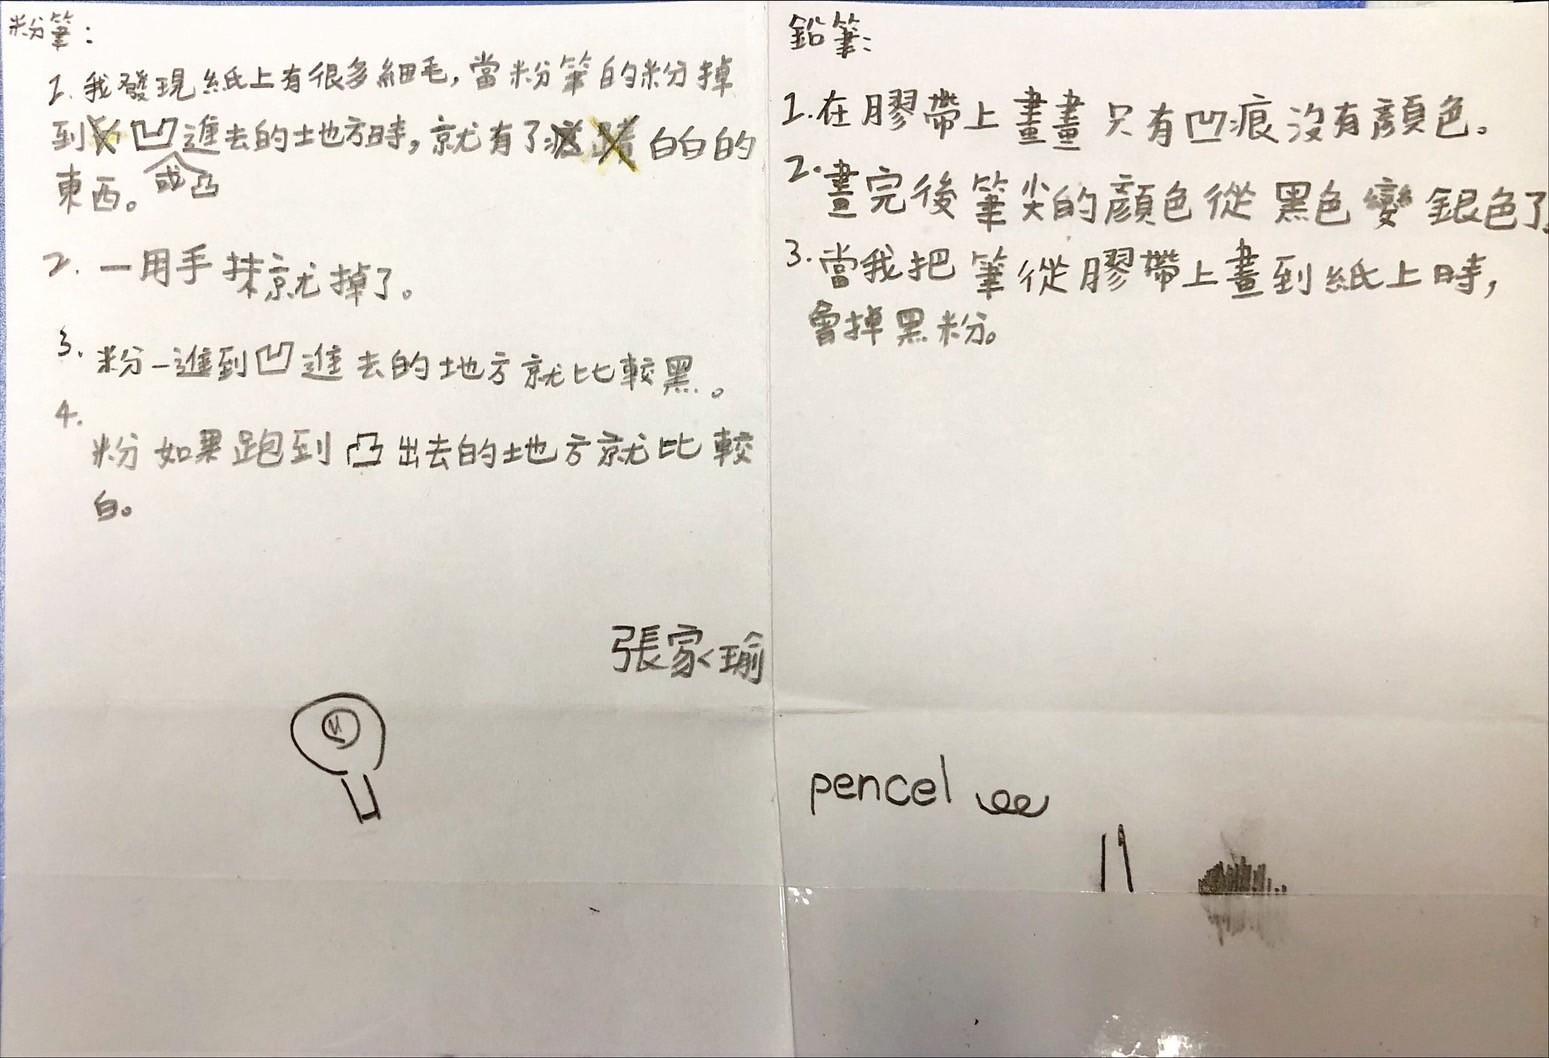 粉筆:
1. 我發現紙上有很多細毛,當粉筆的粉掉
到凹進去的地方時,就有了白白的
或凸
東西。
2. 一用手抹就掉了。
3. 粉一進到凹進去的地方就比較黑。
4.
粉如果跑到凸出去的地方就比較
白。
張家瑜
鉛筆:
1. 在膠帶上畫畫只有凹痕沒有顏色。
2. 畫完後筆尖的顏色從黑色變銀色了
3. 當我把筆從膠帶上畫到紙上時,
會掉黑粉。
pencel